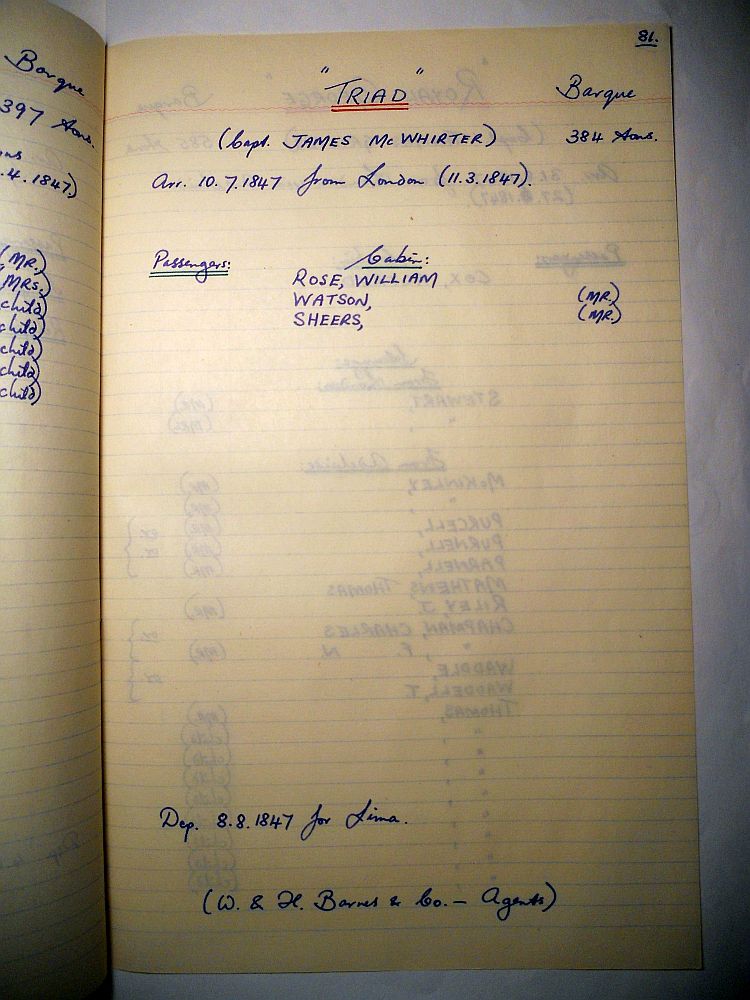 Barque
397 tons.
.4.1847)
(MR.)
(MRS.)
child)
child)
child)
child)
child)
81.
"TRIAD" Barque
(Capt. JAMES McWHIRTER) 384 tons.
Arr. 10.7.1847 from London (11.3.1847).
Passengers: Cabin:
ROSE, WILLIAM
WATSON, (MR.)
SHEERS, (MR.)
Dep. 8.8.1847 for Lima.
(W. & H. Barnes & Co. – Agents)